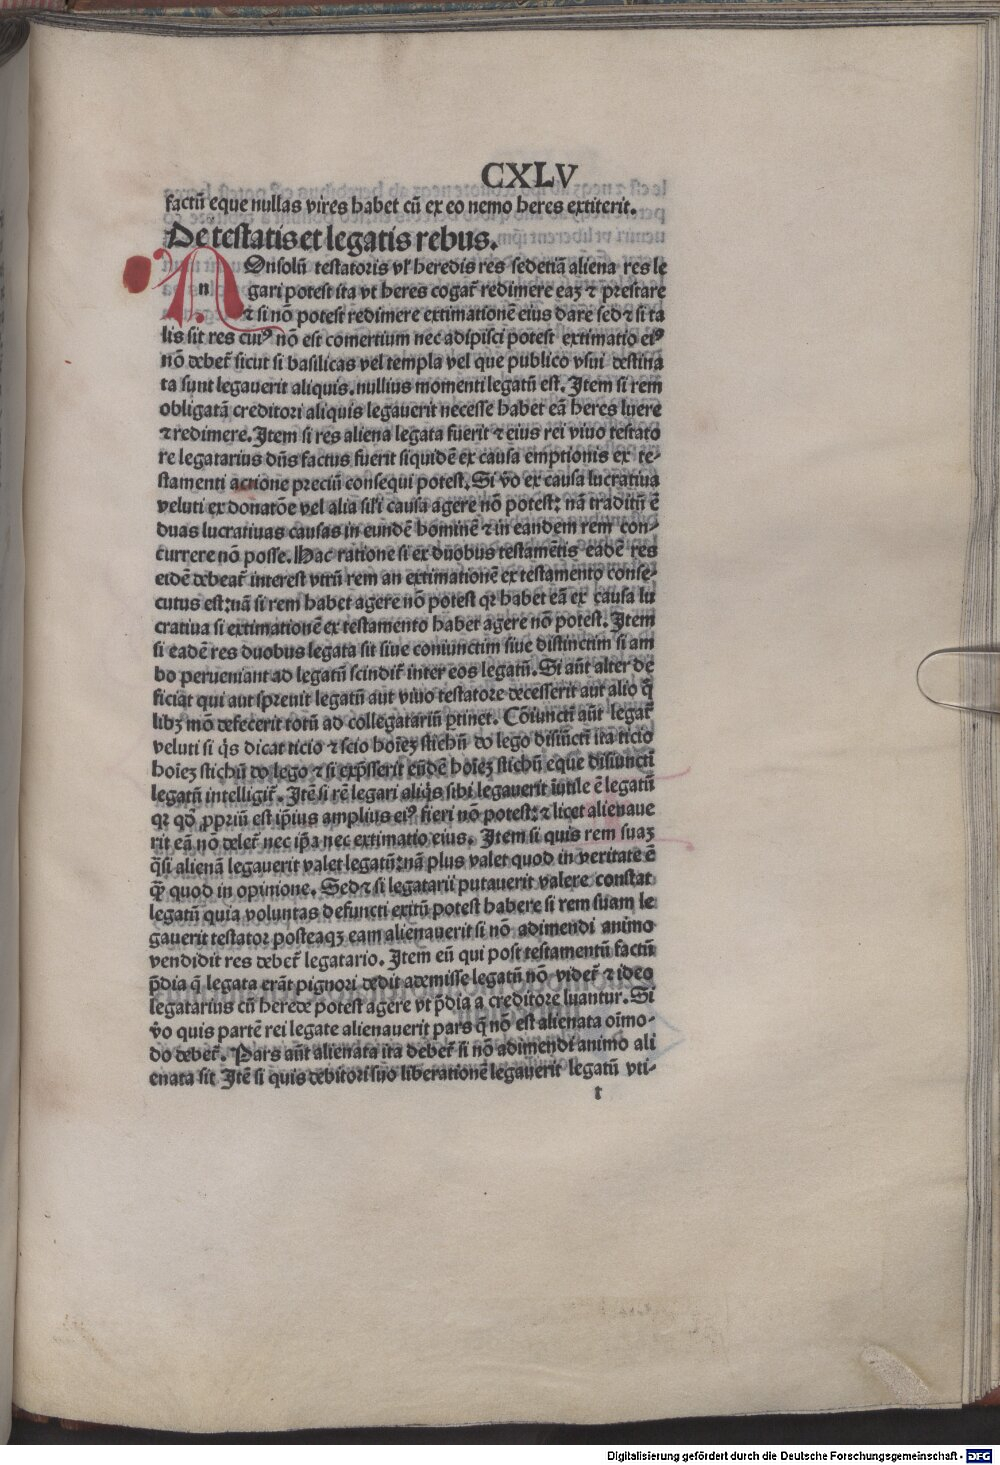 CXLV
factū eque nullas vires habet cū ex eo nemo heres extiterit.
De testatis et legatis rebus.
Onsolū testatoris vl' heredis res sed etiā aliena res le
n gari potest ita vt heres cogat̄ redimere eaꝫ ⁊ prestare
⁊ si nō potest redimere extimationē eius dare sed ⁊ si ta
lis sit res cuiꝰ nō est comertium nec adipisci potest extimatio eiꝰ
nō debet̄ sicut si basilicas vel templa vel que publico vsui destina
ta sunt legauerit aliquis. nullius momenti legatū est. Item si rem
obligatā creditori aliquis legauerit necesse habet eā heres luere
⁊ redimere. Item si res aliena legata fuerit ⁊ eius rei viuo testato
re legatarius dn̄s factus fuerit siquidē ex causa emptionis ex te-
stamenti actione preciū consequi potest. Si v̄o ex causa lucratiua
veluti ex donatōe vel alia sil'i causa agere nō potest: nā traditū ē
duas lucratiuas causas in eundē hominē ⁊ in eandem rem con-
currere nō posse. Hac ratione si ex duobus testamētis eadē res
eidē debeat̄ interest vtrū rem an extimationē ex testamento conse-
cutus est: nā si rem habet agere nō potest qr habet eā ex causa lu
cratiua si extimationē ex testamento habet agere nō potest. Item
si eadē res duobus legata sit siue coniunctim siue distinctim si am
bo perueniant ad legatū scindit̄ inter eos legatū. Si aūt alter de
ficiat qui aut spreuit legatū aut viuo testatore decesserit aut alio q̄
libꝫ mō defecerit totū ad collegatariū ꝑtinet. Cōiuncti aūt legat̄
veluti si q̇s dicat ticio ⁊ seio hoīeꝫ stichū do lego disiūcti ita ticio
hoīeꝫ stichū do lego ⁊ si exp̄sserit eūdē hoīeꝫ stichū eque disiuncti
legatū intelligit̄. Itē si rē legari aliq̇s sibi legauerit īutile ē legatū
qr qd̓ ꝓpriū est ip̄ius amplius eiꝰ fieri nō potest: ⁊ licet alienaue
rit eā nō debet̄ nec ip̄a nec extimatio eius. Item si quis rem suaꝫ
q̄si alienā legauerit valet legatū: nā plus valet quod in veritate ē
q̄ꝫ quod in opinione. Sed ⁊ si legatarii putauerit valere constat
legatū quia voluntas defuncti exitū potest habere si rem suam le
gauerit testator posteaqꝫ eam alienauerit si nō adimendi animo
vendidit res debet̄ legatario. Item eū qui post testamentū factū
p̄dia q̄ legata erāt pignori dedit ademisse legatū nō videt̄ ⁊ ideo
legatarius cū herede potest agere vt p̄dia a creditore luantur. Si
v̄o quis partē rei legate alienauerit pars q̄ nō est alienata oīmo-
do debet̄. Pars aūt alienata ita debet̄ si nō adimendi animo ali
enata sit Itē si quis debitori suo liberationē legauerit legatū vti-
t
Digitalisierung gefördert durch die Deutsche Forschungsgemeinschaft - DFG